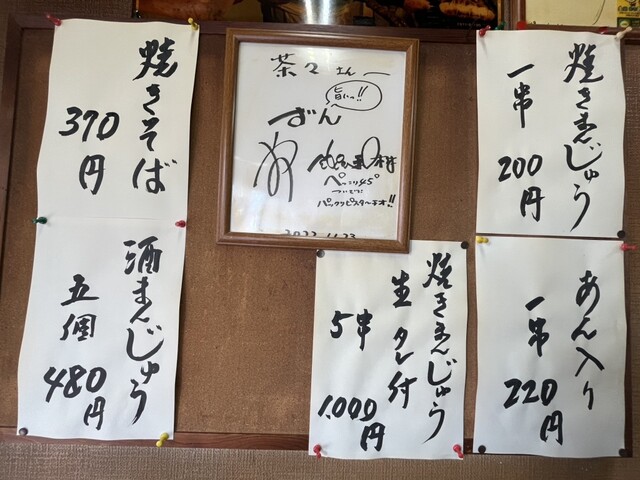 焼きまんじゅう
一串
200円
あん入り
一串
220円
焼きまんじゅう
生 タレ付
5串
1,000円
茶々さんへ
旨いっ!!
ペッコリ45°
ついでに
パックリピスターチオ!!
2022.11.23
焼きそば
370円
酒まんじゅう
五個
480円